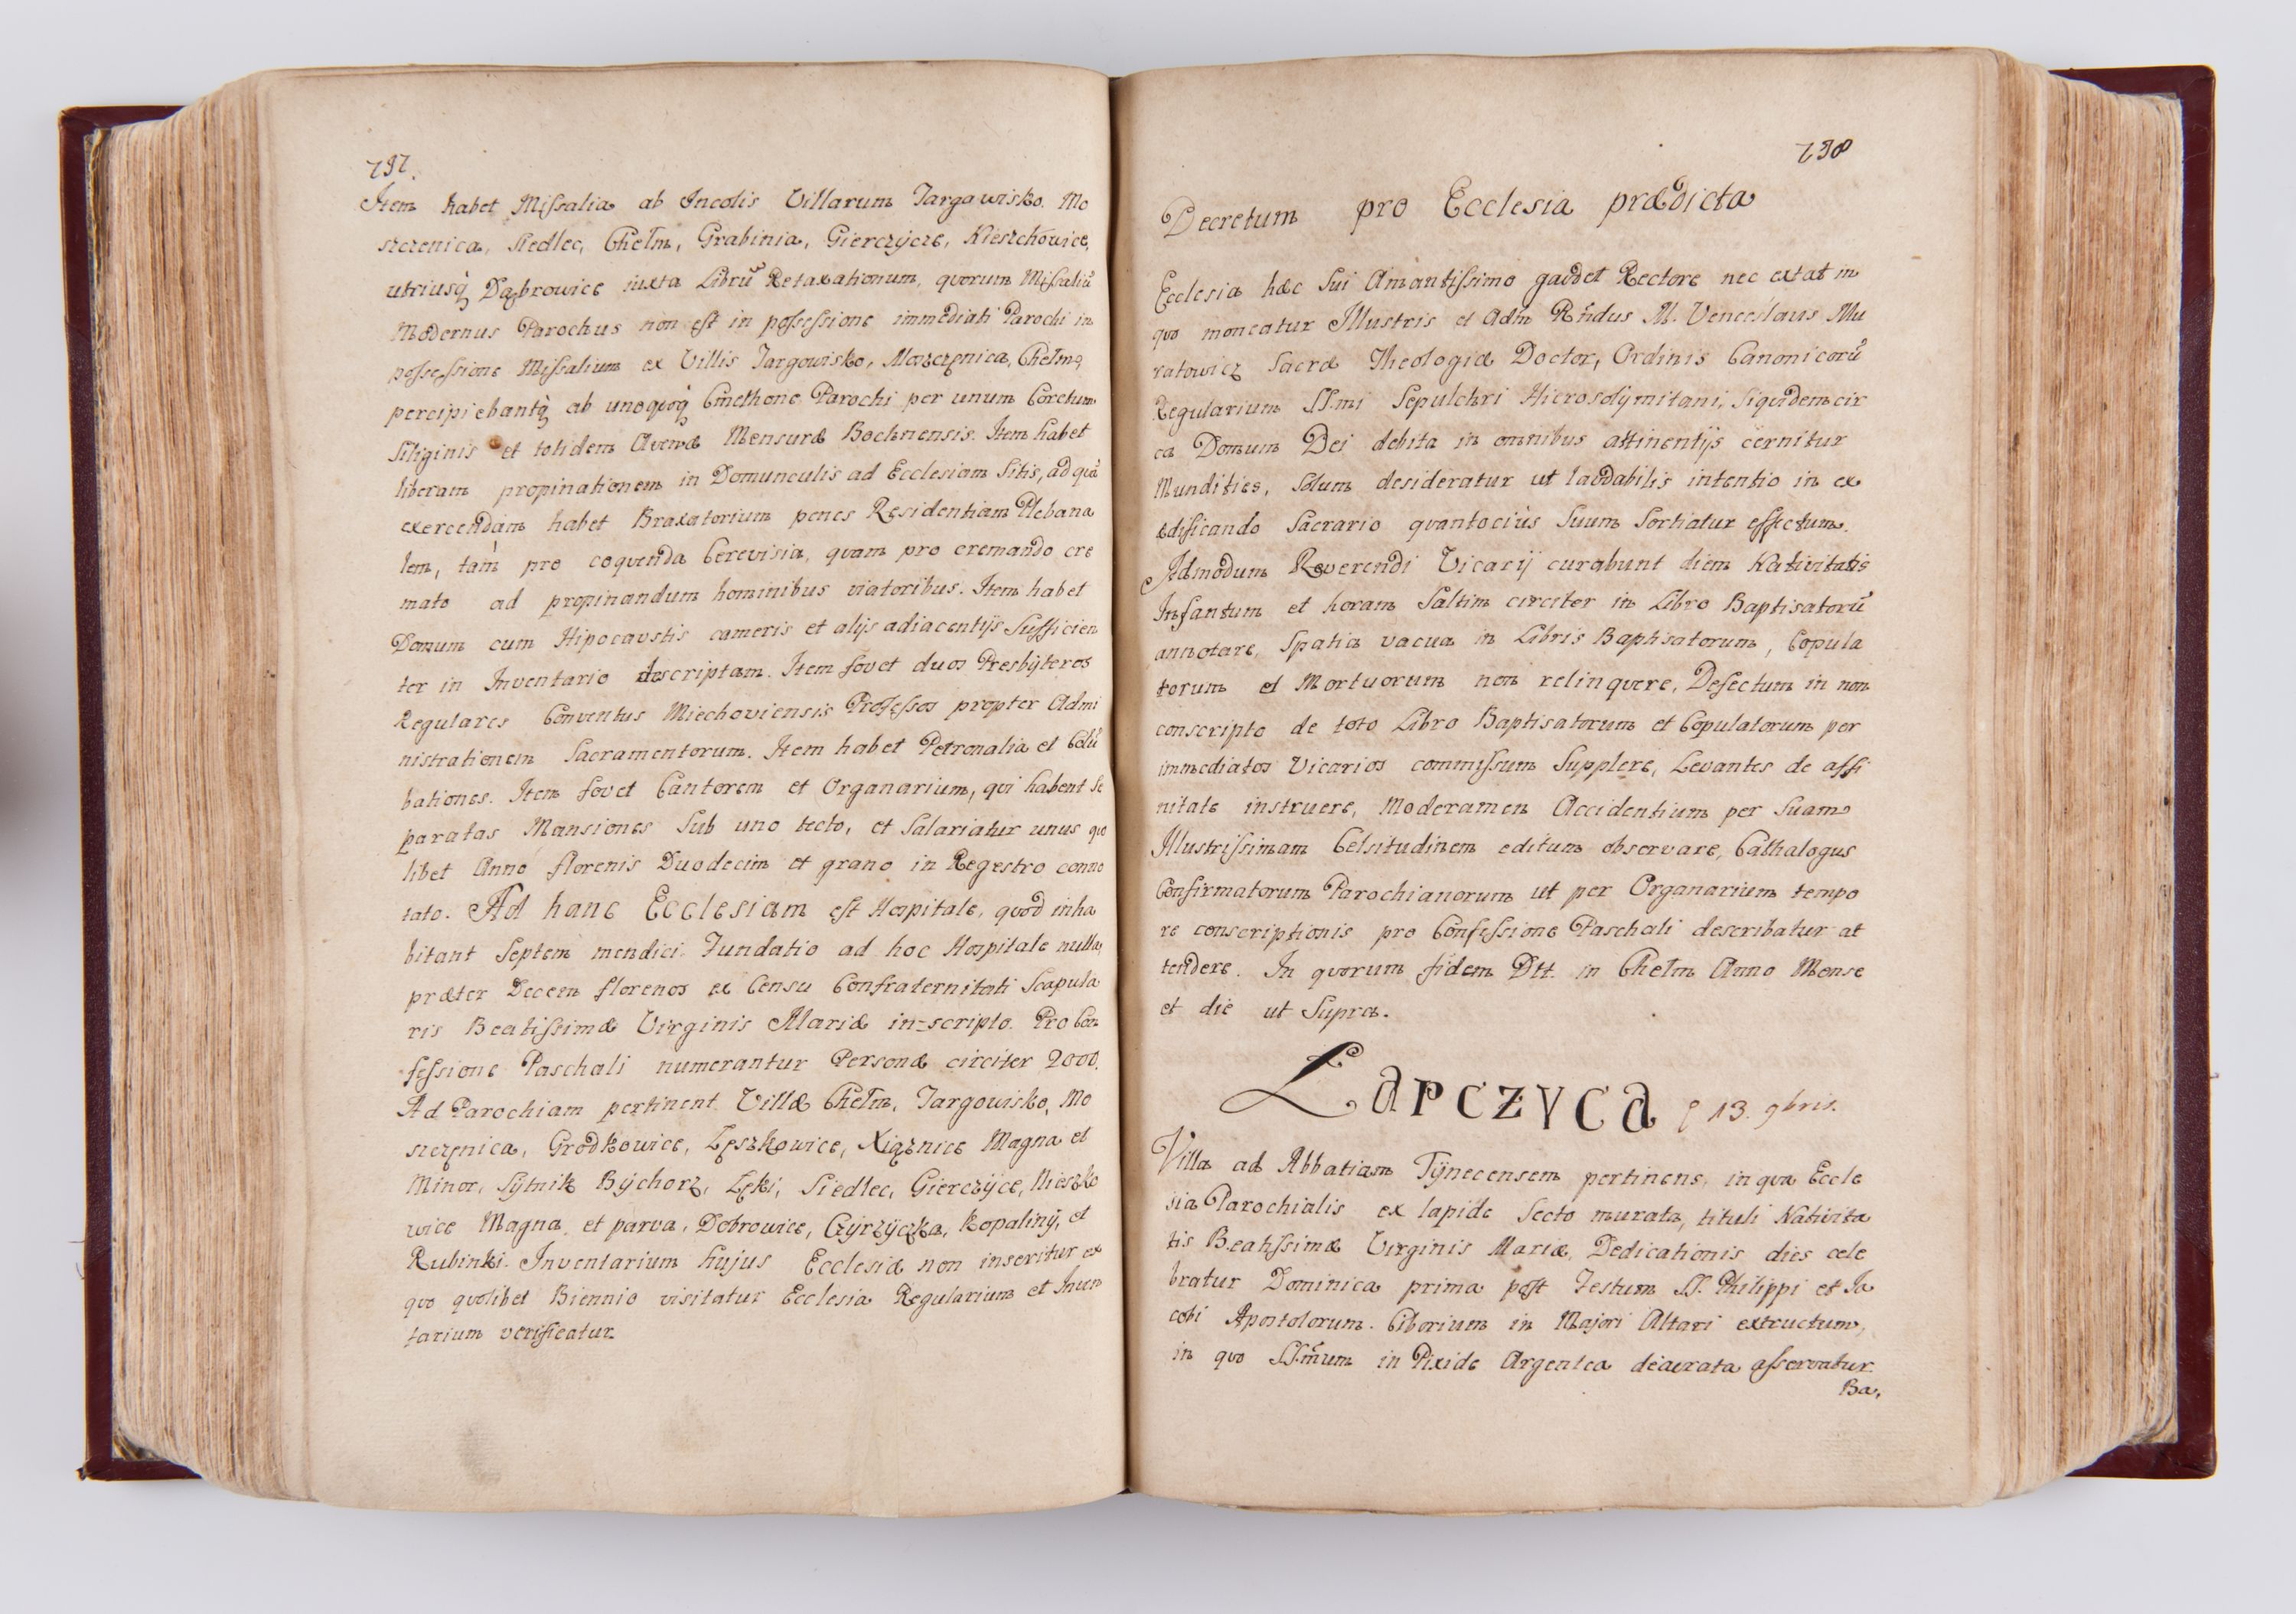 797.
Item habet Missalia ab Incolis Villarum Targawisko. Mo
szczenica, Siedlec, Chełm, Grabinia, Gierczÿcze, Nieszchowice,
utriusq Dąbrowice iuxta Librũ Retaxationum, quorum Missaliũ
Modernus Parochus non est in possessione immediati Parochi in
possessione Missalium ex Villis Targowisko, Moszczenica, Chełm,
percipiebantq ab unoquoq Cmethone Parochi per unum Coretum
Siliginis et totidem Avenæ Mensuræ Bochnensis. Item habet
liberam propinationem in Domunculis ad Ecclesiam Sitis, ad quã
exercendam habet Braxatorium penes Residentiam Plebana
lem, tam pro coquenda Cerevisia, quam pro cremando cre
mato ad propinandum hominibus viatoribus. Item habet
Domum cum Hipocaustis cameris et alijs adiacentijs Sufficien
ter in Inventario descriptam. Item fovet duos Presbÿteros
Regulares Conventus Miechoviensis Professos propter Admi
nistrationem Sacramentorum. Item habet Petronalia et Colũ
bationes. Item fovet Cantorem et Organarium, qui habent Se
paratas Mansiones Sub uno tecto, et Salariatur unus quo
libet Anno florenis Duodecim et grano in Regestro conno
tato. Ad hanc Ecclesiam est Hospitale, quod inha
bitant Septem mendici. Fundatio ad hoc Hospitale nulla,
præter Decem florenos ex Censu Confraternitati Scapula
ris Beatissimæ Virginis Mariæ in=scripto. Pro Con
fessione Paschali numerantur Personæ circiter 2000.
Ad Parochiam pertinent Villæ Chełm, Targowisko, Mo
szczenica, Grodkowice, Łęszkowice, Xiąznice Magna et
Minor, Sÿtnik Bÿchorz, Łęki, Siedlec, Gierczÿce, Nieszko
wice Magna et parva, Dobrowice, Czÿrzÿczka, Kopalinÿ, et
Rubinki. Inventarium hujus Ecclesiæ non inseritur ex
quo quolibet Biennio visitatur Ecclesia Regularium et Inven
tarium verificatur.
798
Decretum pro Ecclesia prædicta
Ecclesia hæc Sui Amantissimo gaudet Rectore nec extat in
quo moneatur Illustris et Adm Rñdus M. Venceslaus Mu
ratowicz Sacræ Theologiæ Doctor, Ordinis Canonicorũ
Regularium SS.mi Sepulchri Hierosolÿmitani, Siquidem cir
ca Domum Dei debita in omnibus attinentijs cernitur
Mundities, Solum desideratur ut laudabilis intentio in ex
ædificando Sacrario quantocius Suum Sortiatur effectum.
Admodum Reverendi Vicarij curabunt diem Nativitatis
Infantum et horam Saltim circiter in Libro Baptisatorũ
annotare, Spatia vacua in Libris Baptisatorum, Copula
torum et Mortuorum non relinquere, Defectum in non
conscripto de toto Libro Baptisatorum et Copulatorum per
immediatos Vicarios commissum Supplere, Levantes de affi
nitate instruere, Moderamen Accidentium per Suam
Illustrissimam Celsitudinem editum observare, Cathalogus
Confirmatorum Parochianorum ut per Organarium tempo
re conscriptionis pro Confessione Paschali describatur at
tendere. In quorum fidem Dtt. in Chełm Anno Mense
et die ut Supra.
Łapczyca 13. 9bris.
Villa ad Abbatiam Tÿnecensem pertinens, in qua Eccle
sia Parochialis ex lapide Secto murata, tituli Nativita
tis Beatissimæ Virginis Mariæ, Dedicationis dies cele
bratur Dominica prima post Festum SS. Philippi et Ja
cobi Apostolorum. Ciborium in Majori Altari extructum,
in quo SS.mum in Pixide Argentea deaurata asservatur.
Ba,